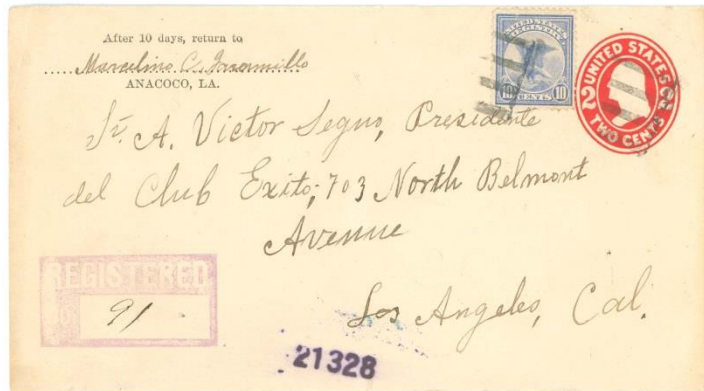 After 10 days, return to
Marcelino C. Jaramillo
ANACOCO, LA.
UNITED STATES
REGISTRY
10 CENTS 10
UNITED STATES
2 TWO CENTS
Sr. A. Victor Segno, Presidente
del Club Exito; 703 North Belmont
Avenue
Los Angeles, Cal.
REGISTERED
91
21328